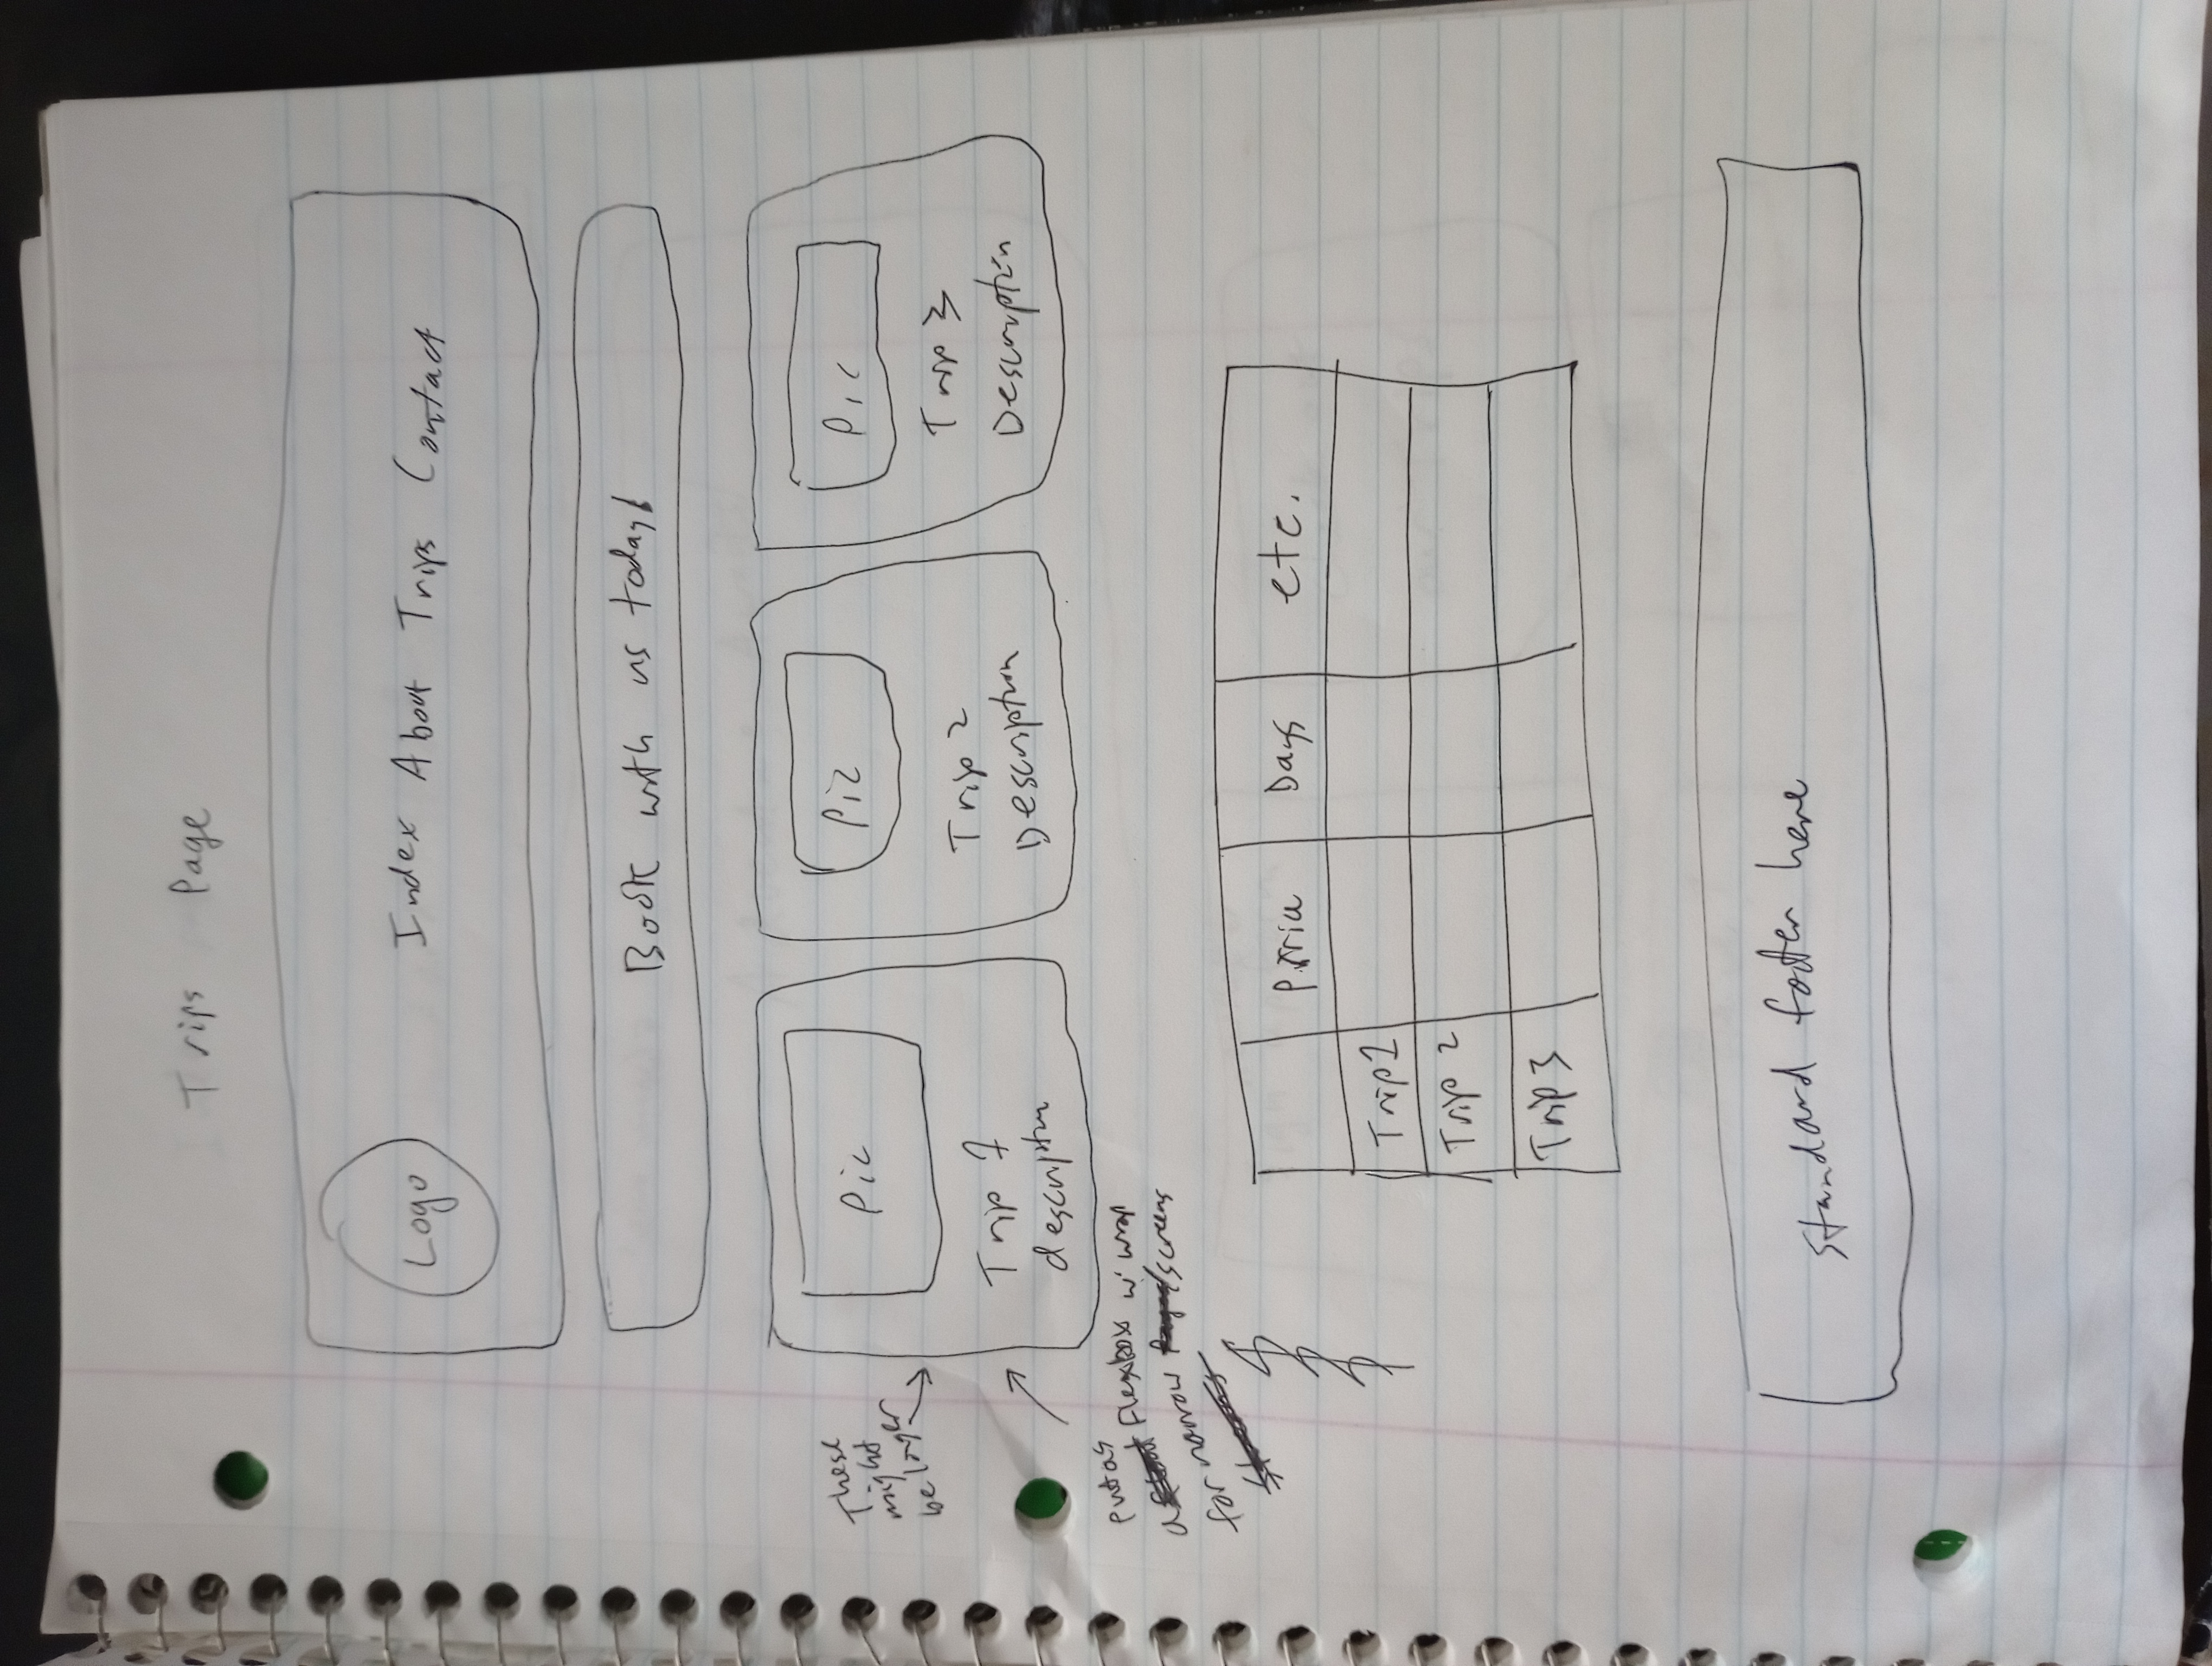 Trips Page
Logo
Index About Trips Contact
Book with us today!
These
might
be larger
Pic
Trip 1
description
Pic
Trip 2
Description
Pic
Trip 3
Description
put as
a Flexbox w' wrap
for narrow screens
Price Days etc.
Trip 1
Trip 2
Trip 3
Standard footer here